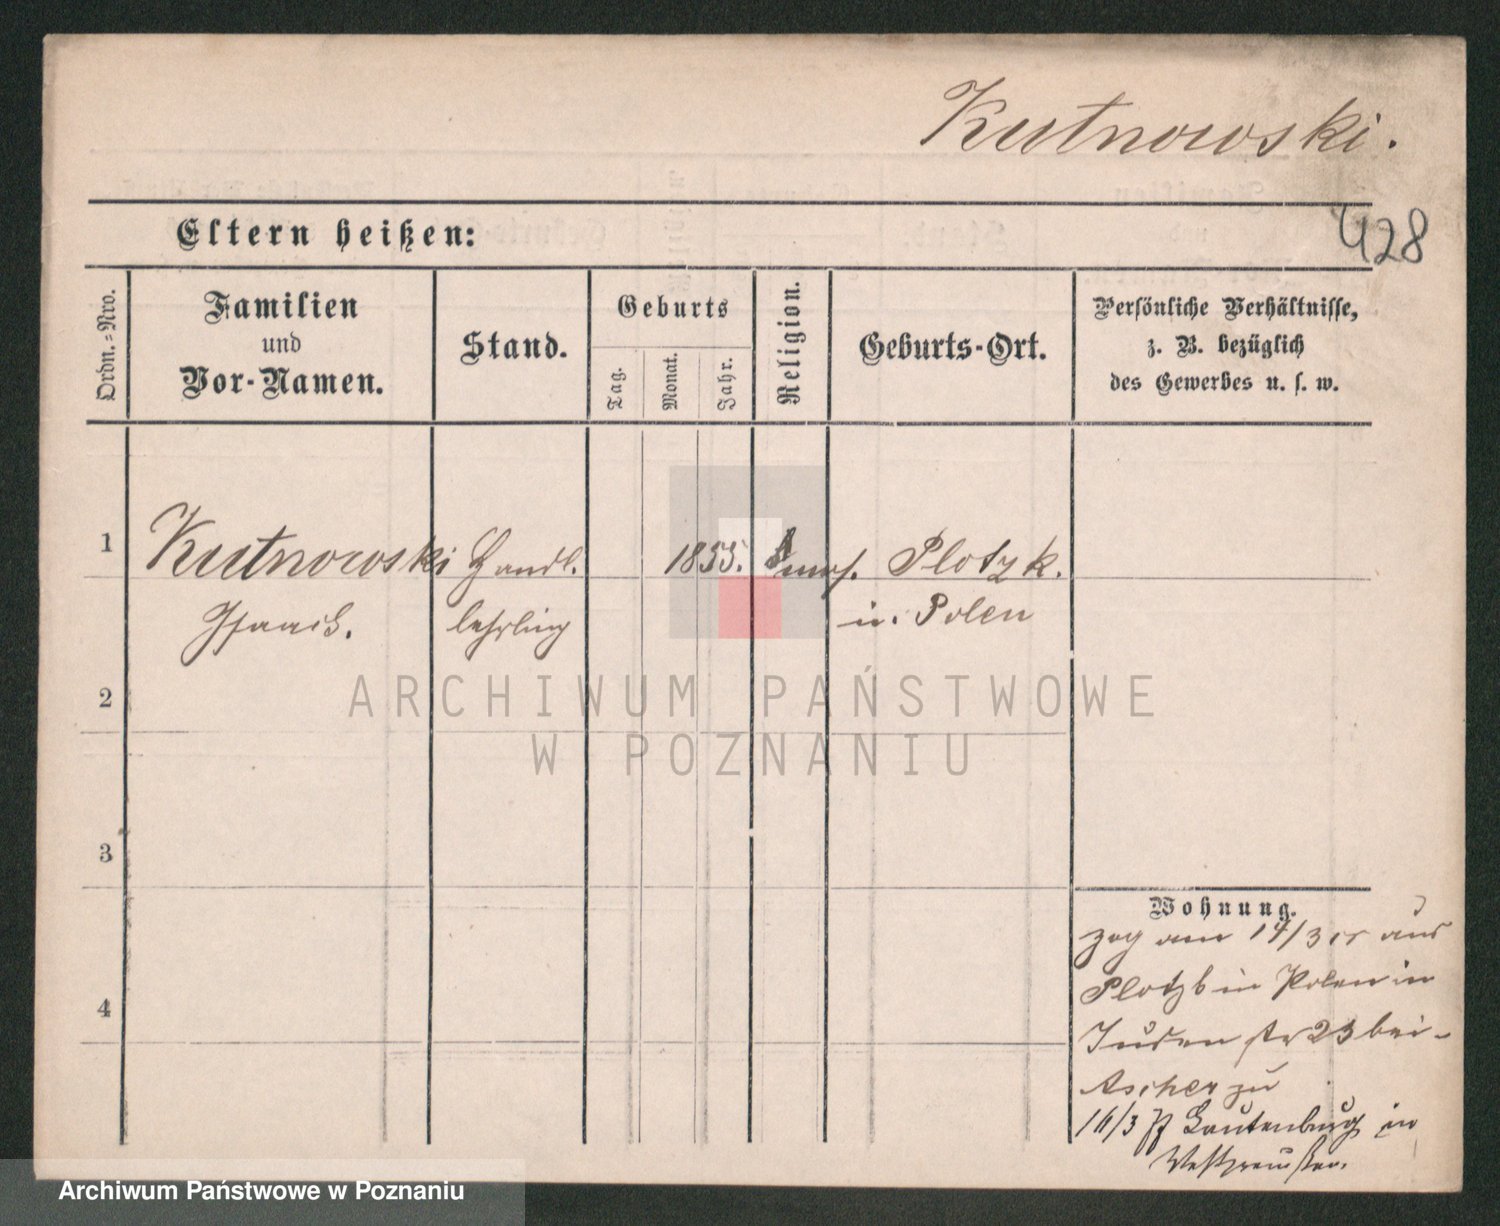 Kutnowski.
Eltern heißen:
428
Ordn.=Nro.
Familien
und
Vor-Namen.
Stand.
Geburts
Tag.
Monat.
Jahr.
Religion.
Geburts-Ort.
Persönliche Verhältnisse,
z. B. bezüglich
des Gewerbes u. s. w.
1
Kutnowski Handl. 1855. mos. Plotzk.
Isaack. lehrling in Polen
ARCHIWUM PAŃSTWOWE
W POZNANIU
2
3
4
Wohnung.
zog am 14/3 cr aus
Plotzk in Polen in
Juden str 23 bei
Ascher zu
16/3 Lautenburg in
Westpreußen.
Archiwum Państwowe w Poznaniu